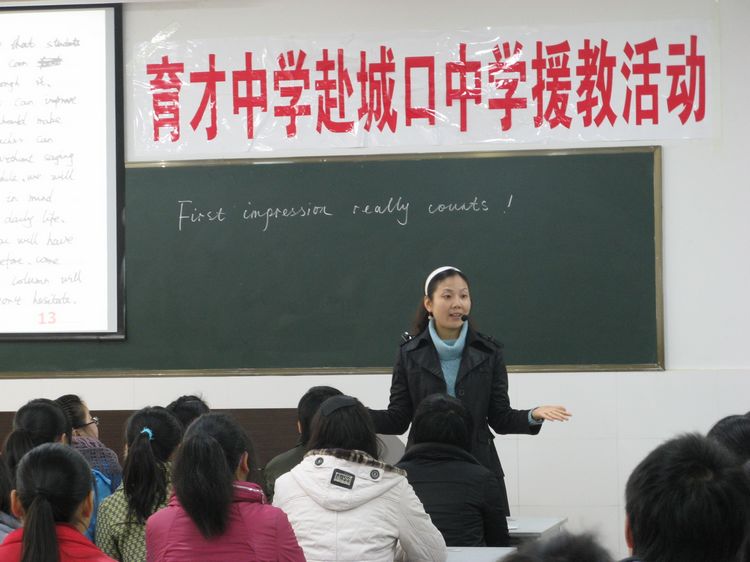 育才中学赴城口中学援教活动
First impression really counts !
that students
can
ough it.
can improve
should make
can
without saying
we will
in mind
daily life.
will have
column will
hesitate.
13